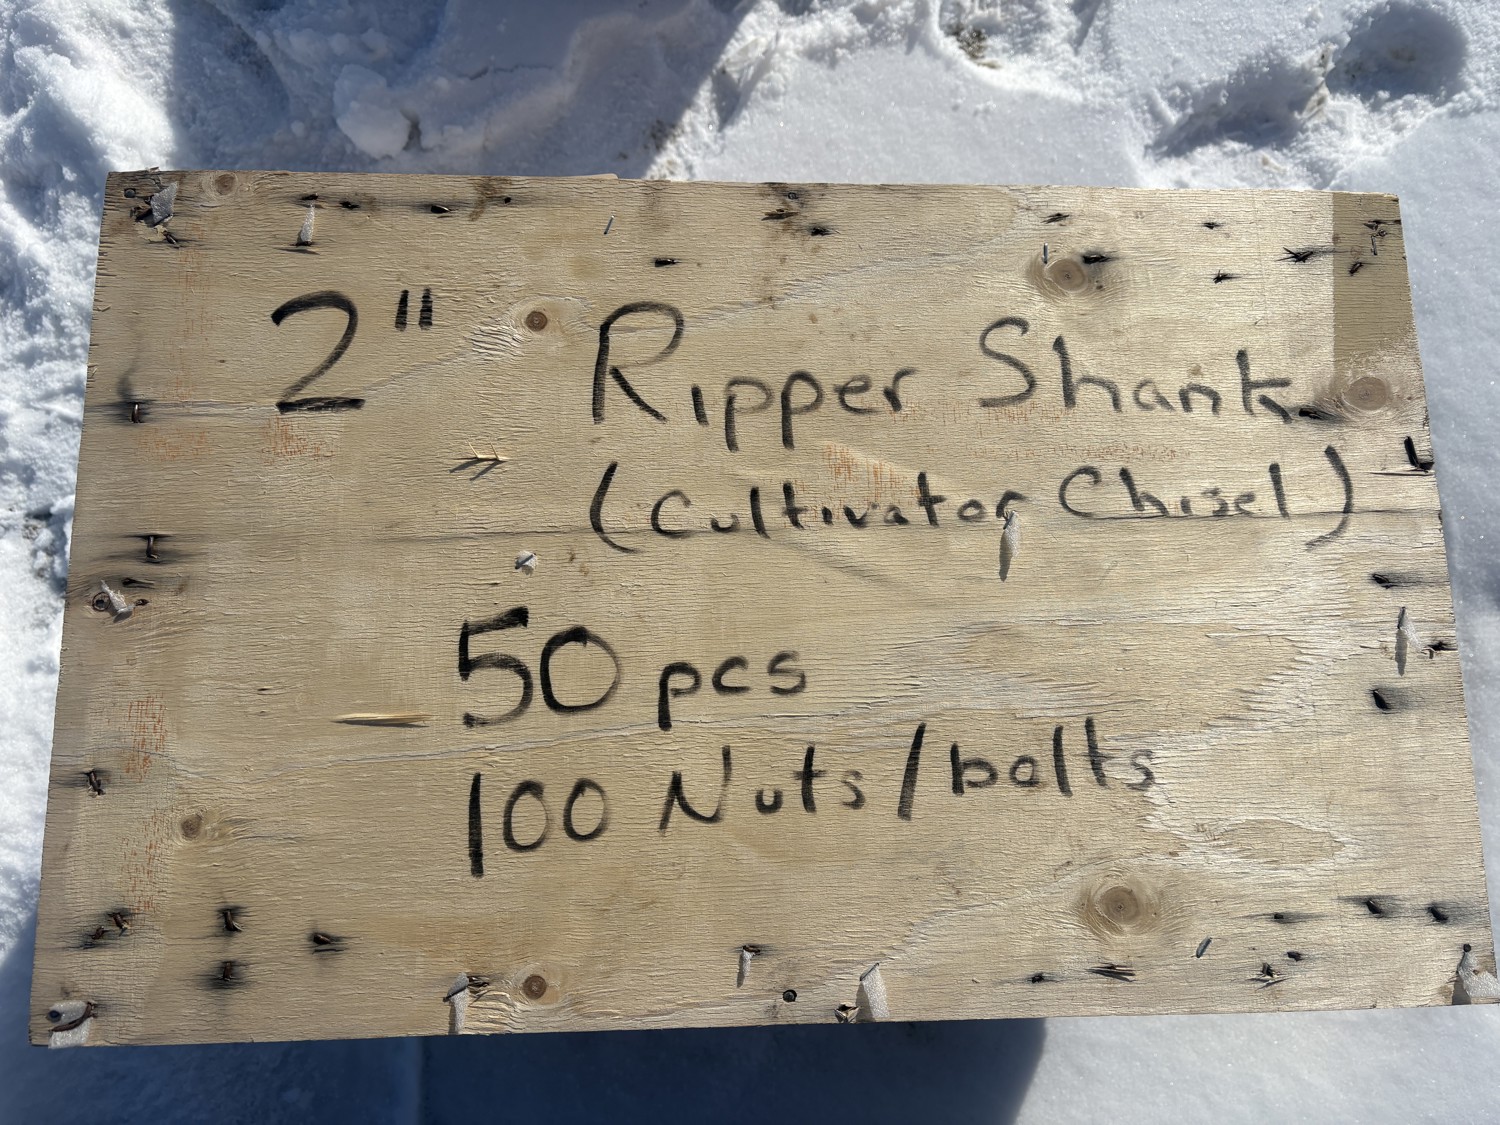 2" Ripper Shank
(Cultivator Chisel)
50 pcs
100 Nuts/bolts